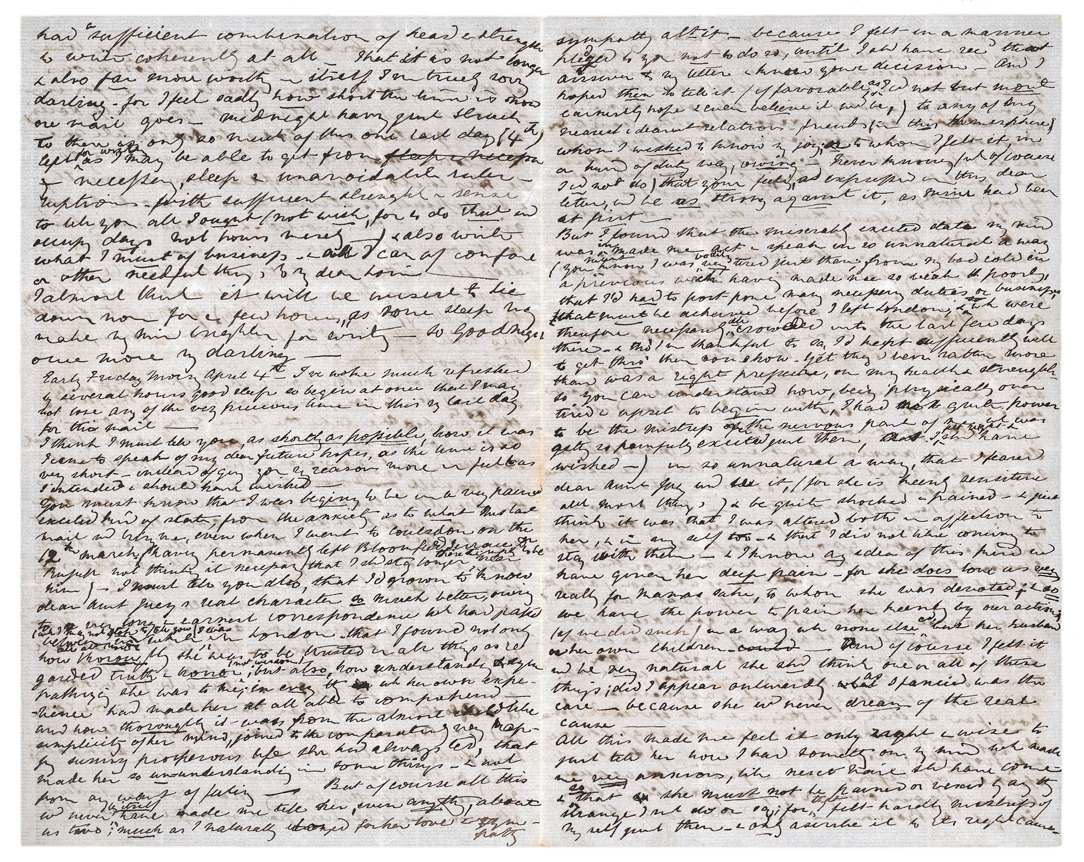 had a sufficient combination of head & strength
to write coherently at all – That it is not longer
& also far more worth – itself I'm truly sorry
darling – for I feel sadly how short the time is now
ere mail goes – midnight having just struck
to there only so much of this one last day (4th)
left for work as I may be able to get from
& necessary sleep & unavoidable inter-
ruptions – with sufficient strength & sense
to tell you all I ought (not wish, for to do that wd
occupy days not hours merely) & also write
what I must of business – & all I can of comfort
or other needful things, to my dear home
I almost think it will be wisest to lie
down now for a few hours, as some sleep may
make my mind brighter for writing – So Good night
once more my darling –
Early Friday morng April 4th – I've woke much refreshed
by several hours good sleep so begin at once that I may
not lose any of the very precious time in this my last day
for this mail –
I think I must tell you, as shortly as possible, how it was
I came to speak of my dear future hopes, as the time is so
very short – instead of givg you my reasons more in full as
I intended & should have wished –
You must know that I was beging to be in a very pained
excited kind of state, from the anxiety as to what this last
mail wd bring me, even when I went to Coulsdon on the
12th March, (having permanently left Bloomfield Terrace
not thinkg it necessary that I shd stay longer near
him) – I must tell you also, that I'd grown to know
dear aunt Jucy's real character so much better, owing
to a very long & earnest correspondence we had past
in London – that I found not only
how thoroughly she was to be trusted in all things as re-
garded truth & honor, but also, how understandg & sym-
pathizg she was to me, in every thg wh her own expe-
rience had made her at all able to comprehend –
and how thoroughly it was from the almost child like
simplicity of her mind, joined to the comparatively very hap-
py sunny prosperous life she had always led, that
made her so un-understanding in some things – & not
from any want of feeling – But of course all this
wd never itself have made me tell her, even anything, about
us two; much as I naturally longed for her loved sym-
pathy
sympathy abt it – because I felt in a manner
pledged to you not to do so, until I shd have recd that
answer to my letter & know your decision – And I
hoped then to tell it (if favorable as I'd not but most
earnestly hope & even believe it wd be,) to any of my
nearest & dearest relations & friends (in this hemisphere)
whom I wished to know my joy, or to whom I felt it, in
a kind of duty way, owing – Never knowing (of course
I'd not do) that your feelgs, as expressed in this dear
letter, wd be as strong against it, as mine had been
at first –
But I found that the miserable excited state my mind
was in made me act & speak in so unnatural a way
(you know I was very tired just then from my bad cold in
a previous month having made me so weak & poorly,
that I'd had to post pone many necessary duties or business,
that must be achieved before I left London, wh were
therefore necessarily crowded into the last few days
there – & tho' I'm thankful to say I'd kept sufficiently well
to get thro' them somehow – yet they were rather more
than was a right pressure, on my health & strength –
so you can understand how, being physically over
tired & upset to begin with, I had not quite power
to be the mistress of the nervous part of me, that was
getg so painfully excited just then, as I shd have
wished –) in so unnatural a way, that I feared
dear aunt Jucy wd see it, (for she is keenly sensitive
abt most things,) & be quite shocked & pained – & just
think it was that I was altered both in affection to
her, & in my self too – & that I did not like coming to
stay with them – & I know any idea of this kind wd
have given her deep pain – for she does love us very
really for Mamas sake, to whom she was devoted, & so
we have the power to pain her keenly by our actions
(if we did such) in a way wh none else, save her husband
or her own children could – And of course I felt it
wd be very natural she shd think one or all of these
things, did I appear outwardly what I fancied was the
case – because she wd never dream of the real
cause –
All this made me feel it only right & wise to
just tell her how I had something on my mind wh made
me very anxious, till next mail shd have come –
& that so she must not be pained or vexed by any thg
strange I might do or say; for, I felt hardly mistress of
my self just then – & only ascribe it to its right cause –